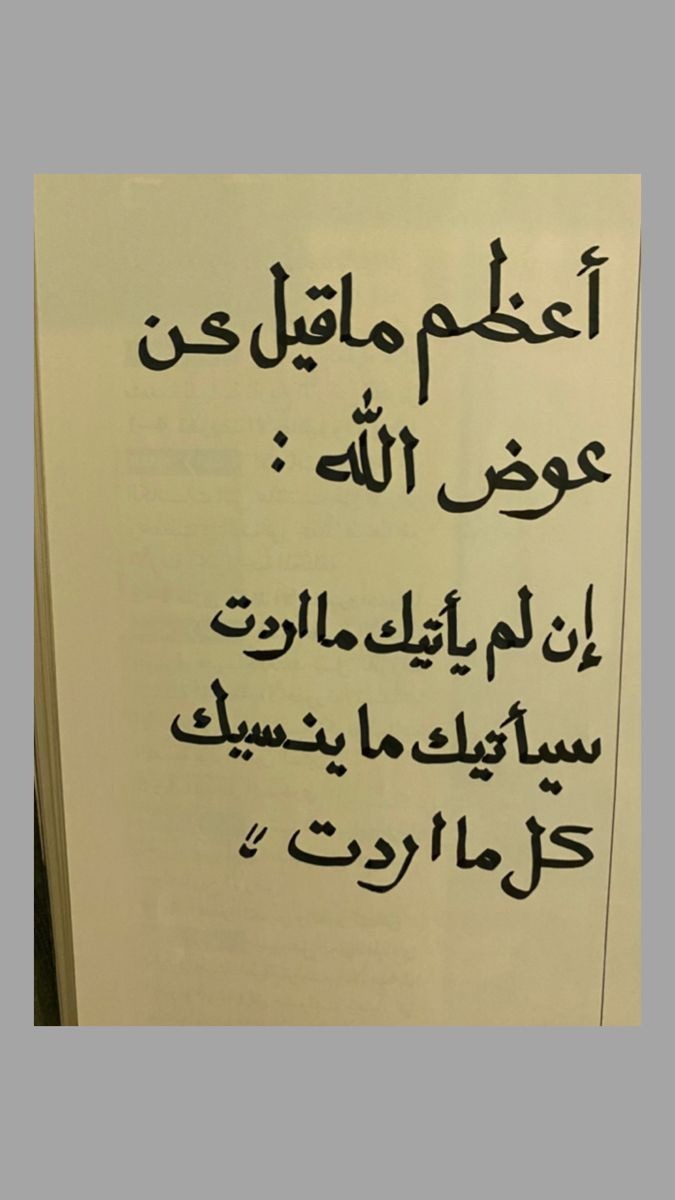 أعظم ماقيل عن
عوض الله :
إن لم يأتيك ما اردت
سيأتيك ما ينسيك
كل ما اردت "